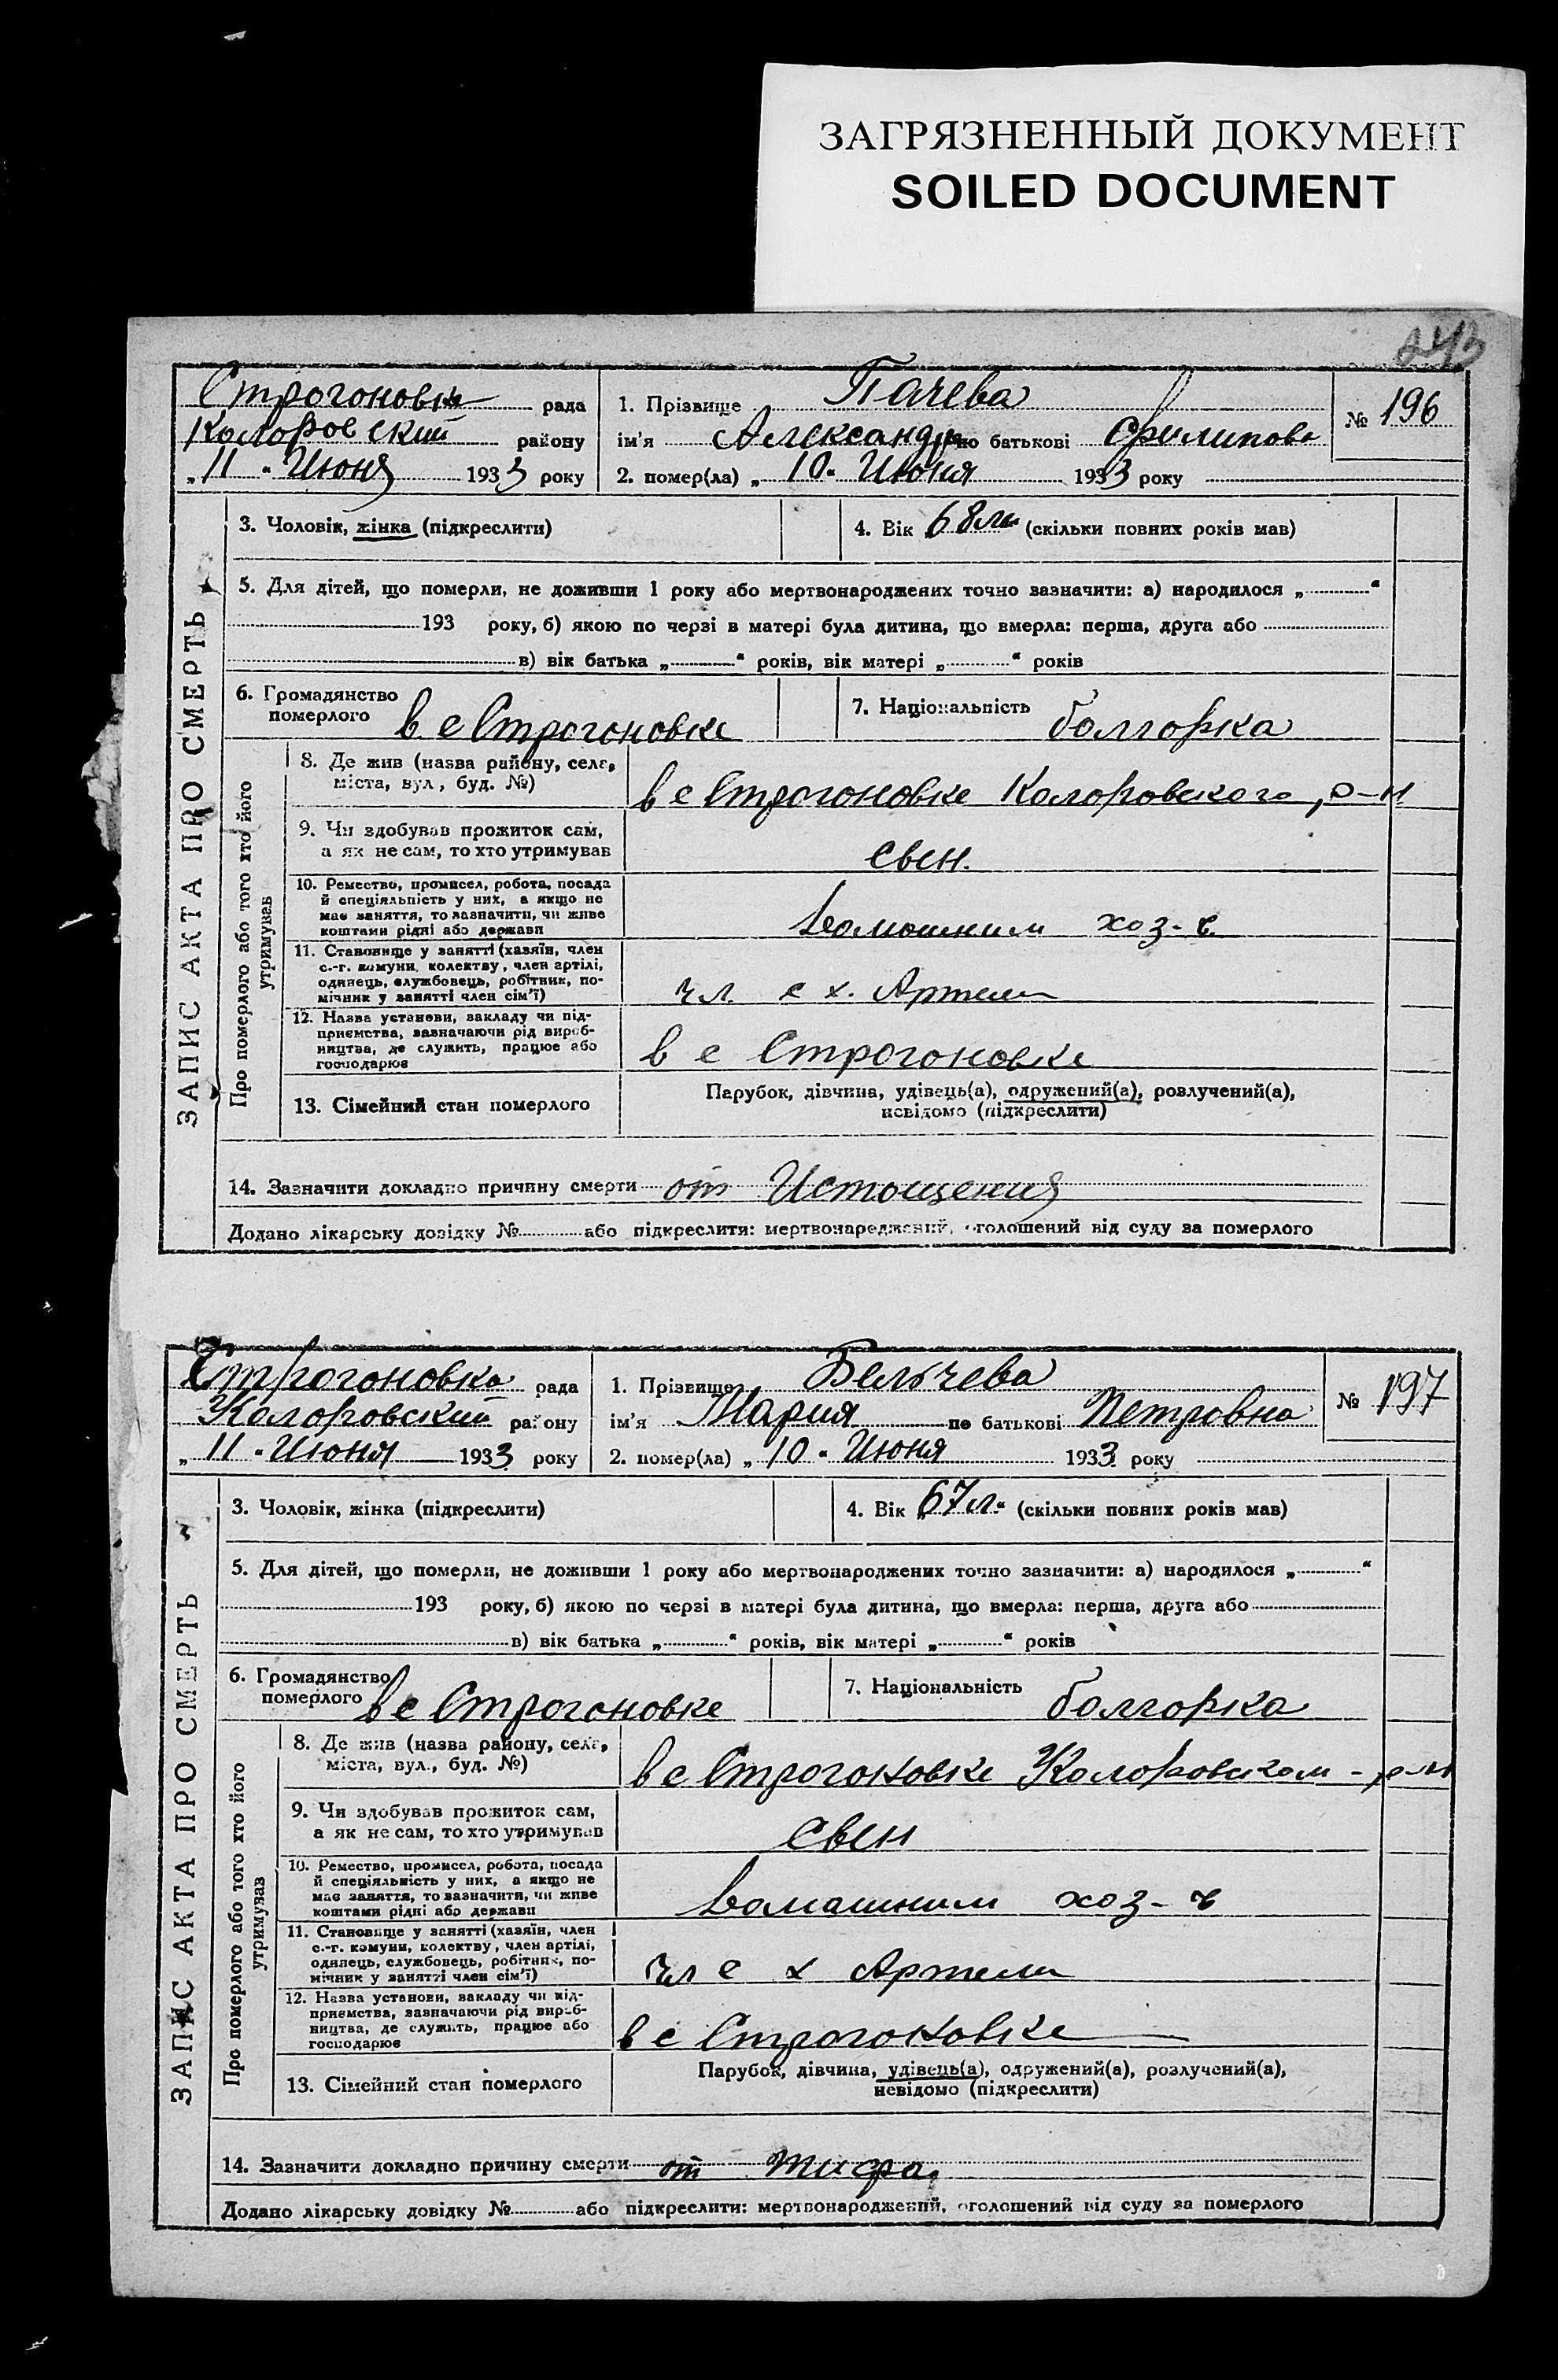 ЗАГРЯЗНЕННЫЙ ДОКУМЕНТ
SOILED DOCUMENT
243
Строгоновка рада
Коларовский району
„11“ Июня 1933 року
1. Прізвище Пачева
ім'я Александра по батькові Филипова
2. помер(ла) „10“ Июня 1933 року
№ 196
ЗАПИС АКТА ПРО СМЕРТЬ
3. Чоловік, жінка (підкреслити)
4. Вік 68 л. (скільки повних років мав)
5. Для дітей, що померли, не доживши 1 року або мертвонароджених точно зазначити: а) народилося „ “
193 року, б) якою по черзі в матері була дитина, що вмерла: перша, друга або
в) вік батька „ “ років, вік матері „ “ років
6. Громадянство
померлого в с Строгоновке
7. Національність болгорка
Про померлого або того хто його
утримував
8. Де жив (назва району, села,
міста, вул., буд. №)
в с Строгоновке Коларовского р-н
9. Чи здобував прожиток сам,
а як не сам, то хто утримував
свен.
10. Ремество, промисел, робота, посада
й спеціяльність у них, а якщо не
має заняття, то зазначити, чи живе
коштами рідні або держави
домошним хоз-в
11. Становище у занятті (хазяїн, член
с.-г. комуни, колектву, член артілі,
одинець, службовець, робітник, по-
мічник у занятті член сім'ї)
чл. с х. Артели
12. Назва установи, закладу чи під-
приємства, зазначаючи рід вироб-
ництва, де служить, працює або
господарює
в с Строгоновке
13. Сімейний стан померлого
Парубок, дівчина, удівець(а), одружений(а), розлучений(а),
невідомо (підкреслити)
14. Зазначити докладно причину смерти от Истощения
Додано лікарську довідку № або підкреслити: мертвонароджений, оголошений від суду за померлого
Строгоновка рада
Коларовский району
„11“ Июня 1933 року
1. Прізвище Бельчева
ім'я Мария по батькові Петровна
2. помер(ла) „10“ Июня 1933 року
№ 197
ЗАПИС АКТА ПРО СМЕРТЬ
3. Чоловік, жінка (підкреслити)
4. Вік 67 л. (скільки повних років мав)
5. Для дітей, що померли, не доживши 1 року або мертвонароджених точно зазначити: а) народилося „ “
193 року, б) якою по черзі в матері була дитина, що вмерла: перша, друга або
в) вік батька „ “ років, вік матері „ “ років
6. Громадянство
померлого в с Строгоновке
7. Національність болгорка
Про померлого або того хто його
утримував
8. Де жив (назва району, села,
міста, вул., буд. №)
в с Строгоновке Коларовском - р-н
9. Чи здобував прожиток сам,
а як не сам, то хто утримував
свен
10. Ремество, промисел, робота, посада
й спеціяльність у них, а якщо не
має заняття, то зазначити, чи живе
коштами рідні або держави
домашним хоз-в
11. Становище у занятті (хазяїн, член
с.-г. комуни, колектву, член артілі,
одинець, службовець, робітник, по-
мічник у занятті член сім'ї)
чл с х Артели
12. Назва установи, закладу чи під-
приємства, зазначаючи рід вироб-
ництва, де служить, працює або
господарює
в с Строгоновке
13. Сімейний стан померлого
Парубок, дівчина, удівець(а), одружений(а), розлучений(а),
невідомо (підкреслити)
14. Зазначити докладно причину смерти от тифа
Додано лікарську довідку № або підкреслити: мертвонароджений, оголошений від суду за померлого